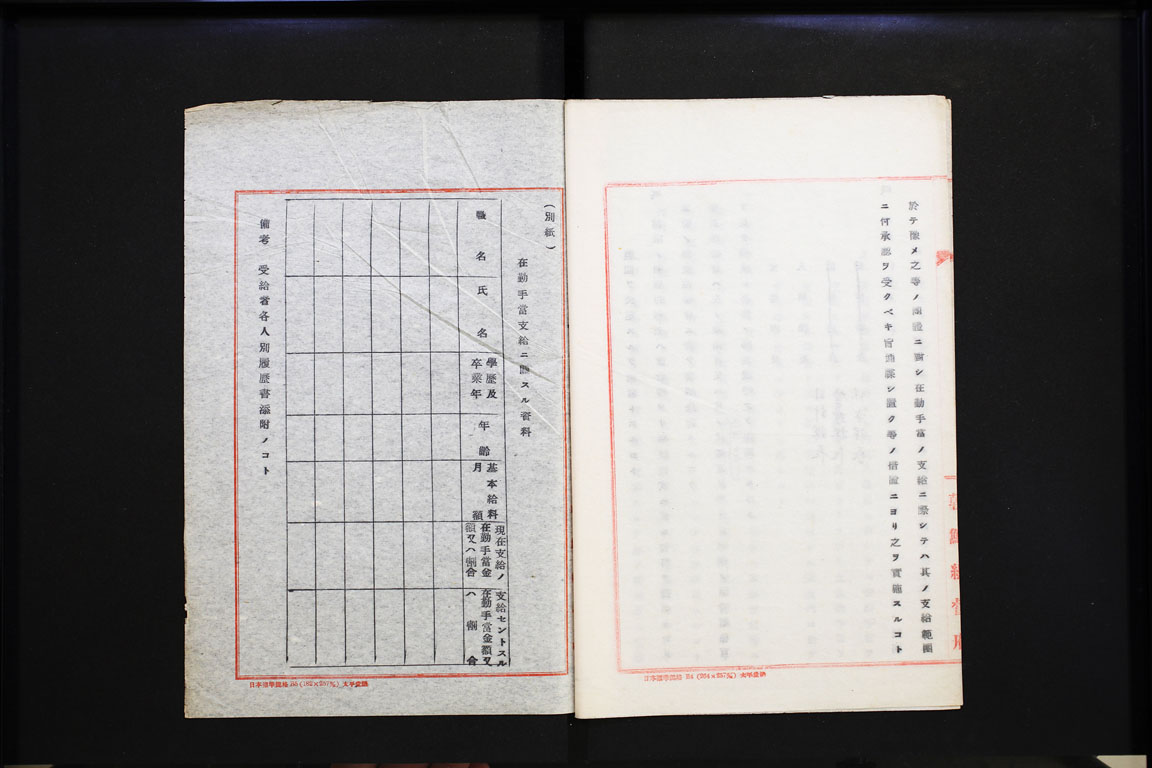 於テ豫メ之等ノ團體ニ對シ在勤手當ノ支給ニ際シテハ其ノ支給範圍
ニ何承認ヲ受クベキ旨通牒シ置ク等ノ措置ニヨリ之ヲ實施スルコト
朝鮮總督府
日本標準規格 B4 (364×257㎜)
(別紙)
在勤手當支給ニ關スル資料
職名
氏名
學歷及
卒業年
年齡
基本給料
月額
現在支給ノ
在勤手當金
額又ハ割合
支給セントスル
在勤手當金額又
ハ割合
備考 受給者各人別履歷書添附ノコト
日本標準規格 B5 (182×257㎜)